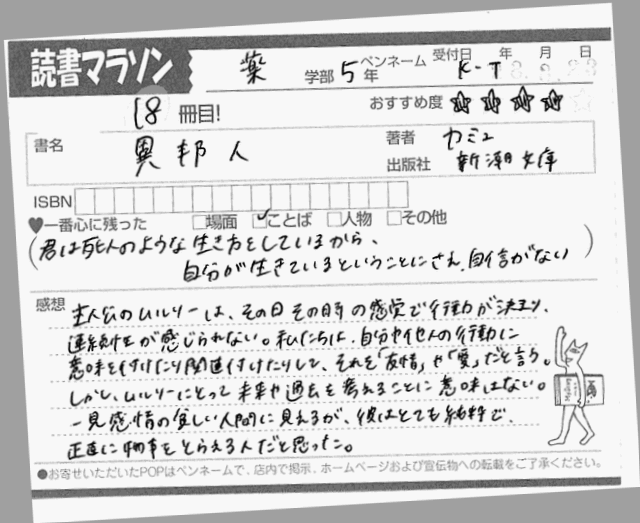 読書マラソン
薬 学部 5 年 ペンネーム K-T 受付日 年 月 日
18 冊目!
おすすめ度 ☆☆☆☆
書名 異邦人
著者 カミュ
出版社 新潮文庫
ISBN
♥一番心に残った □場面 ☑ことば □人物 □その他
(君は死人のような生き方をしているから、
自分が生きているということにさえ、自信がない)
感想
主人公のムルソーは、その日その時の感覚で行動が決まり、
連続性が感じられない。私たちは、自分や他人の行動に
意味を付けたり関連付けたりして、それを「友情」や「愛」だと言う。
しかし、ムルソーにとって未来や過去を考えることに意味はない。
一見感情の貧しい人間に見えるが、彼はとても純粋で、
正直に物事をとらえる人だと思った。
●お寄せいただいたPOPはペンネームで、店内で掲示、ホームページおよび宣伝物への転載をご了承ください。